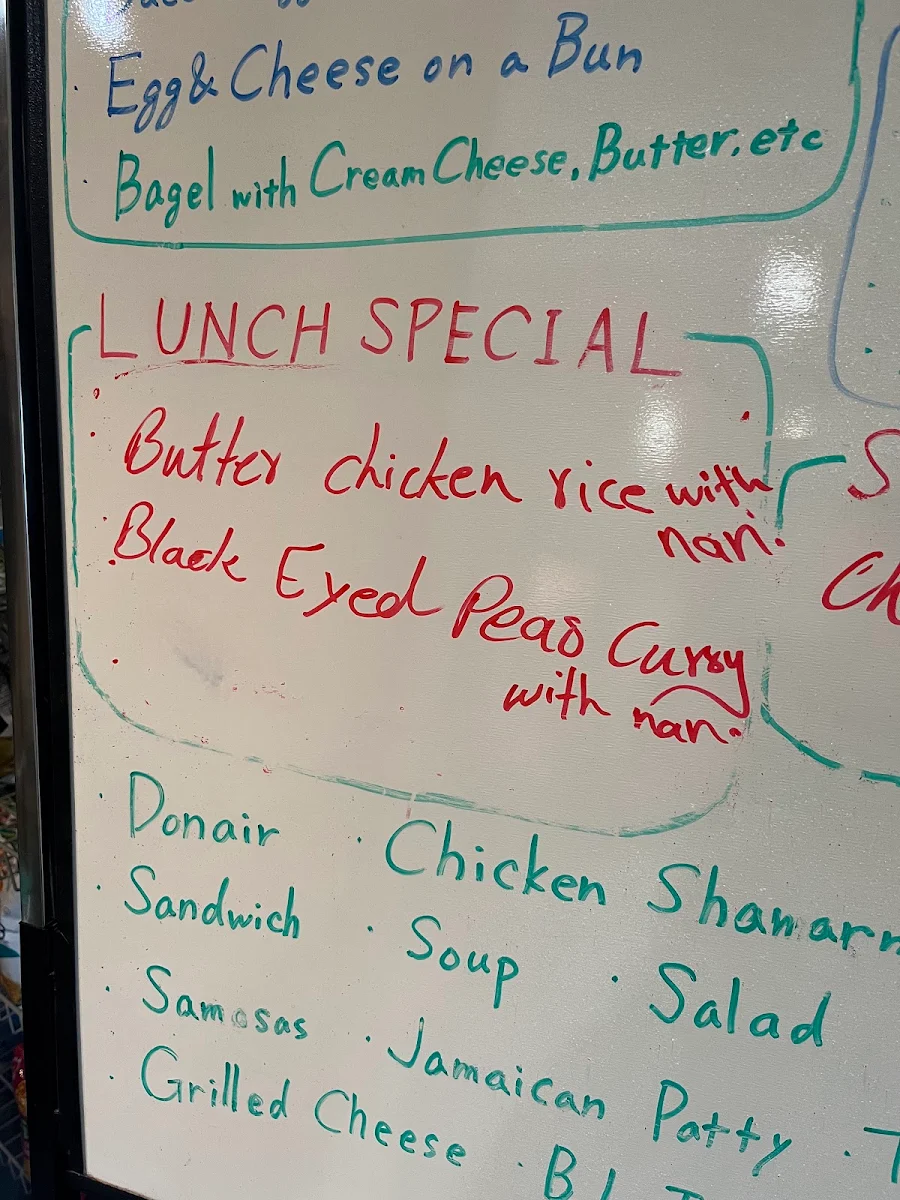 Egg & Cheese on a Bun
Bagel with Cream Cheese, Butter, etc
LUNCH SPECIAL
Butter chicken rice with
nan.
Black Eyed Peas Curry
with nan.
Donair · Chicken
Sandwich · Soup · Salad
Samosas · Jamaican Patty
Grilled Cheese